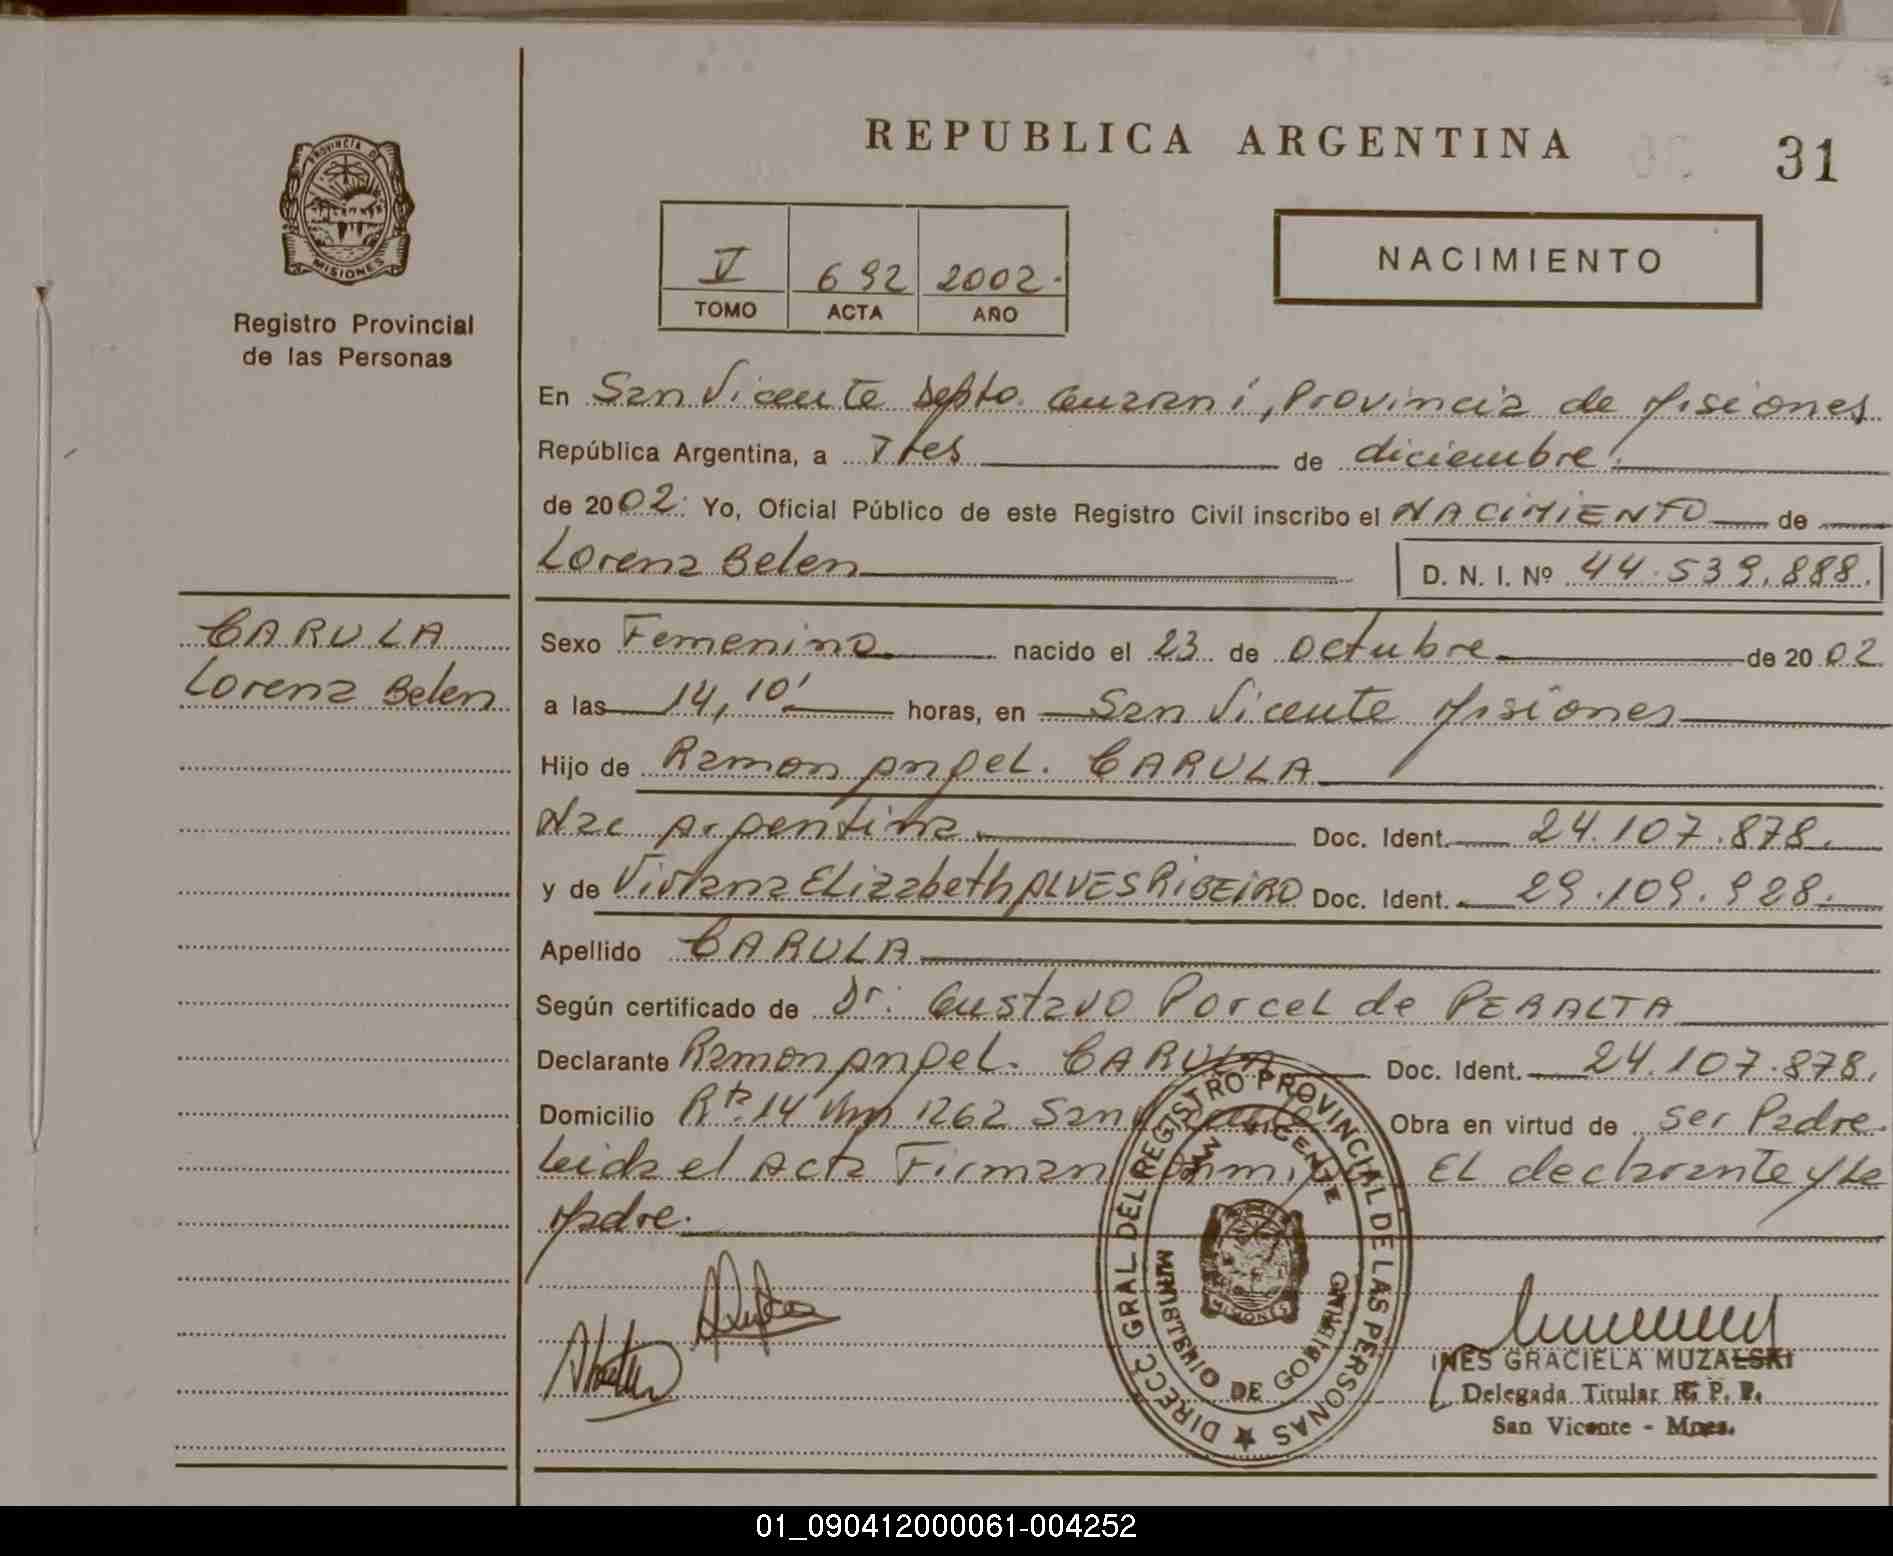 REPUBLICA ARGENTINA
31
PROVINCIA DE
MISIONES
Registro Provincial
de las Personas
V 692 2002.
TOMO ACTA AÑO
NACIMIENTO
En San Vicente Depto. Guarani, Provincia de Misiones
República Argentina, a Tres de diciembre.
de 2002. Yo, Oficial Público de este Registro Civil inscribo el NACIMIENTO de
Lorena Belen D. N. I. Nº 44.539.888.
CARULA
Lorena Belen
Sexo Femenino nacido el 23 de octubre de 2002
a las 14,10' horas, en San Vicente Misiones
Hijo de Ramon Angel. CARULA
Nac Argentina. Doc. Ident. 24.107.878.
y de Viviana Elizabeth ALVES RIBEIRO Doc. Ident. 29.109.928.
Apellido CARULA
Según certificado de Dr: Gustavo Porcel de PERALTA
Declarante Ramon Angel. CARULA Doc. Ident. 24.107.878.
Domicilio Rta. 14 Km 1262 San Vicente Obra en virtud de ser Padre.
Leida el Acta Firman El declarante y la
Madre.
DIRECC. GRAL. DEL REGISTRO PROVINCIAL DE LAS PERSONAS
SAN VICENTE
MINISTERIO DE GOBIERNO
INES GRACIELA MUZALSKI
Delegada Titular R. P. P.
San Vicente - Mnes.
01_090412000061-004252